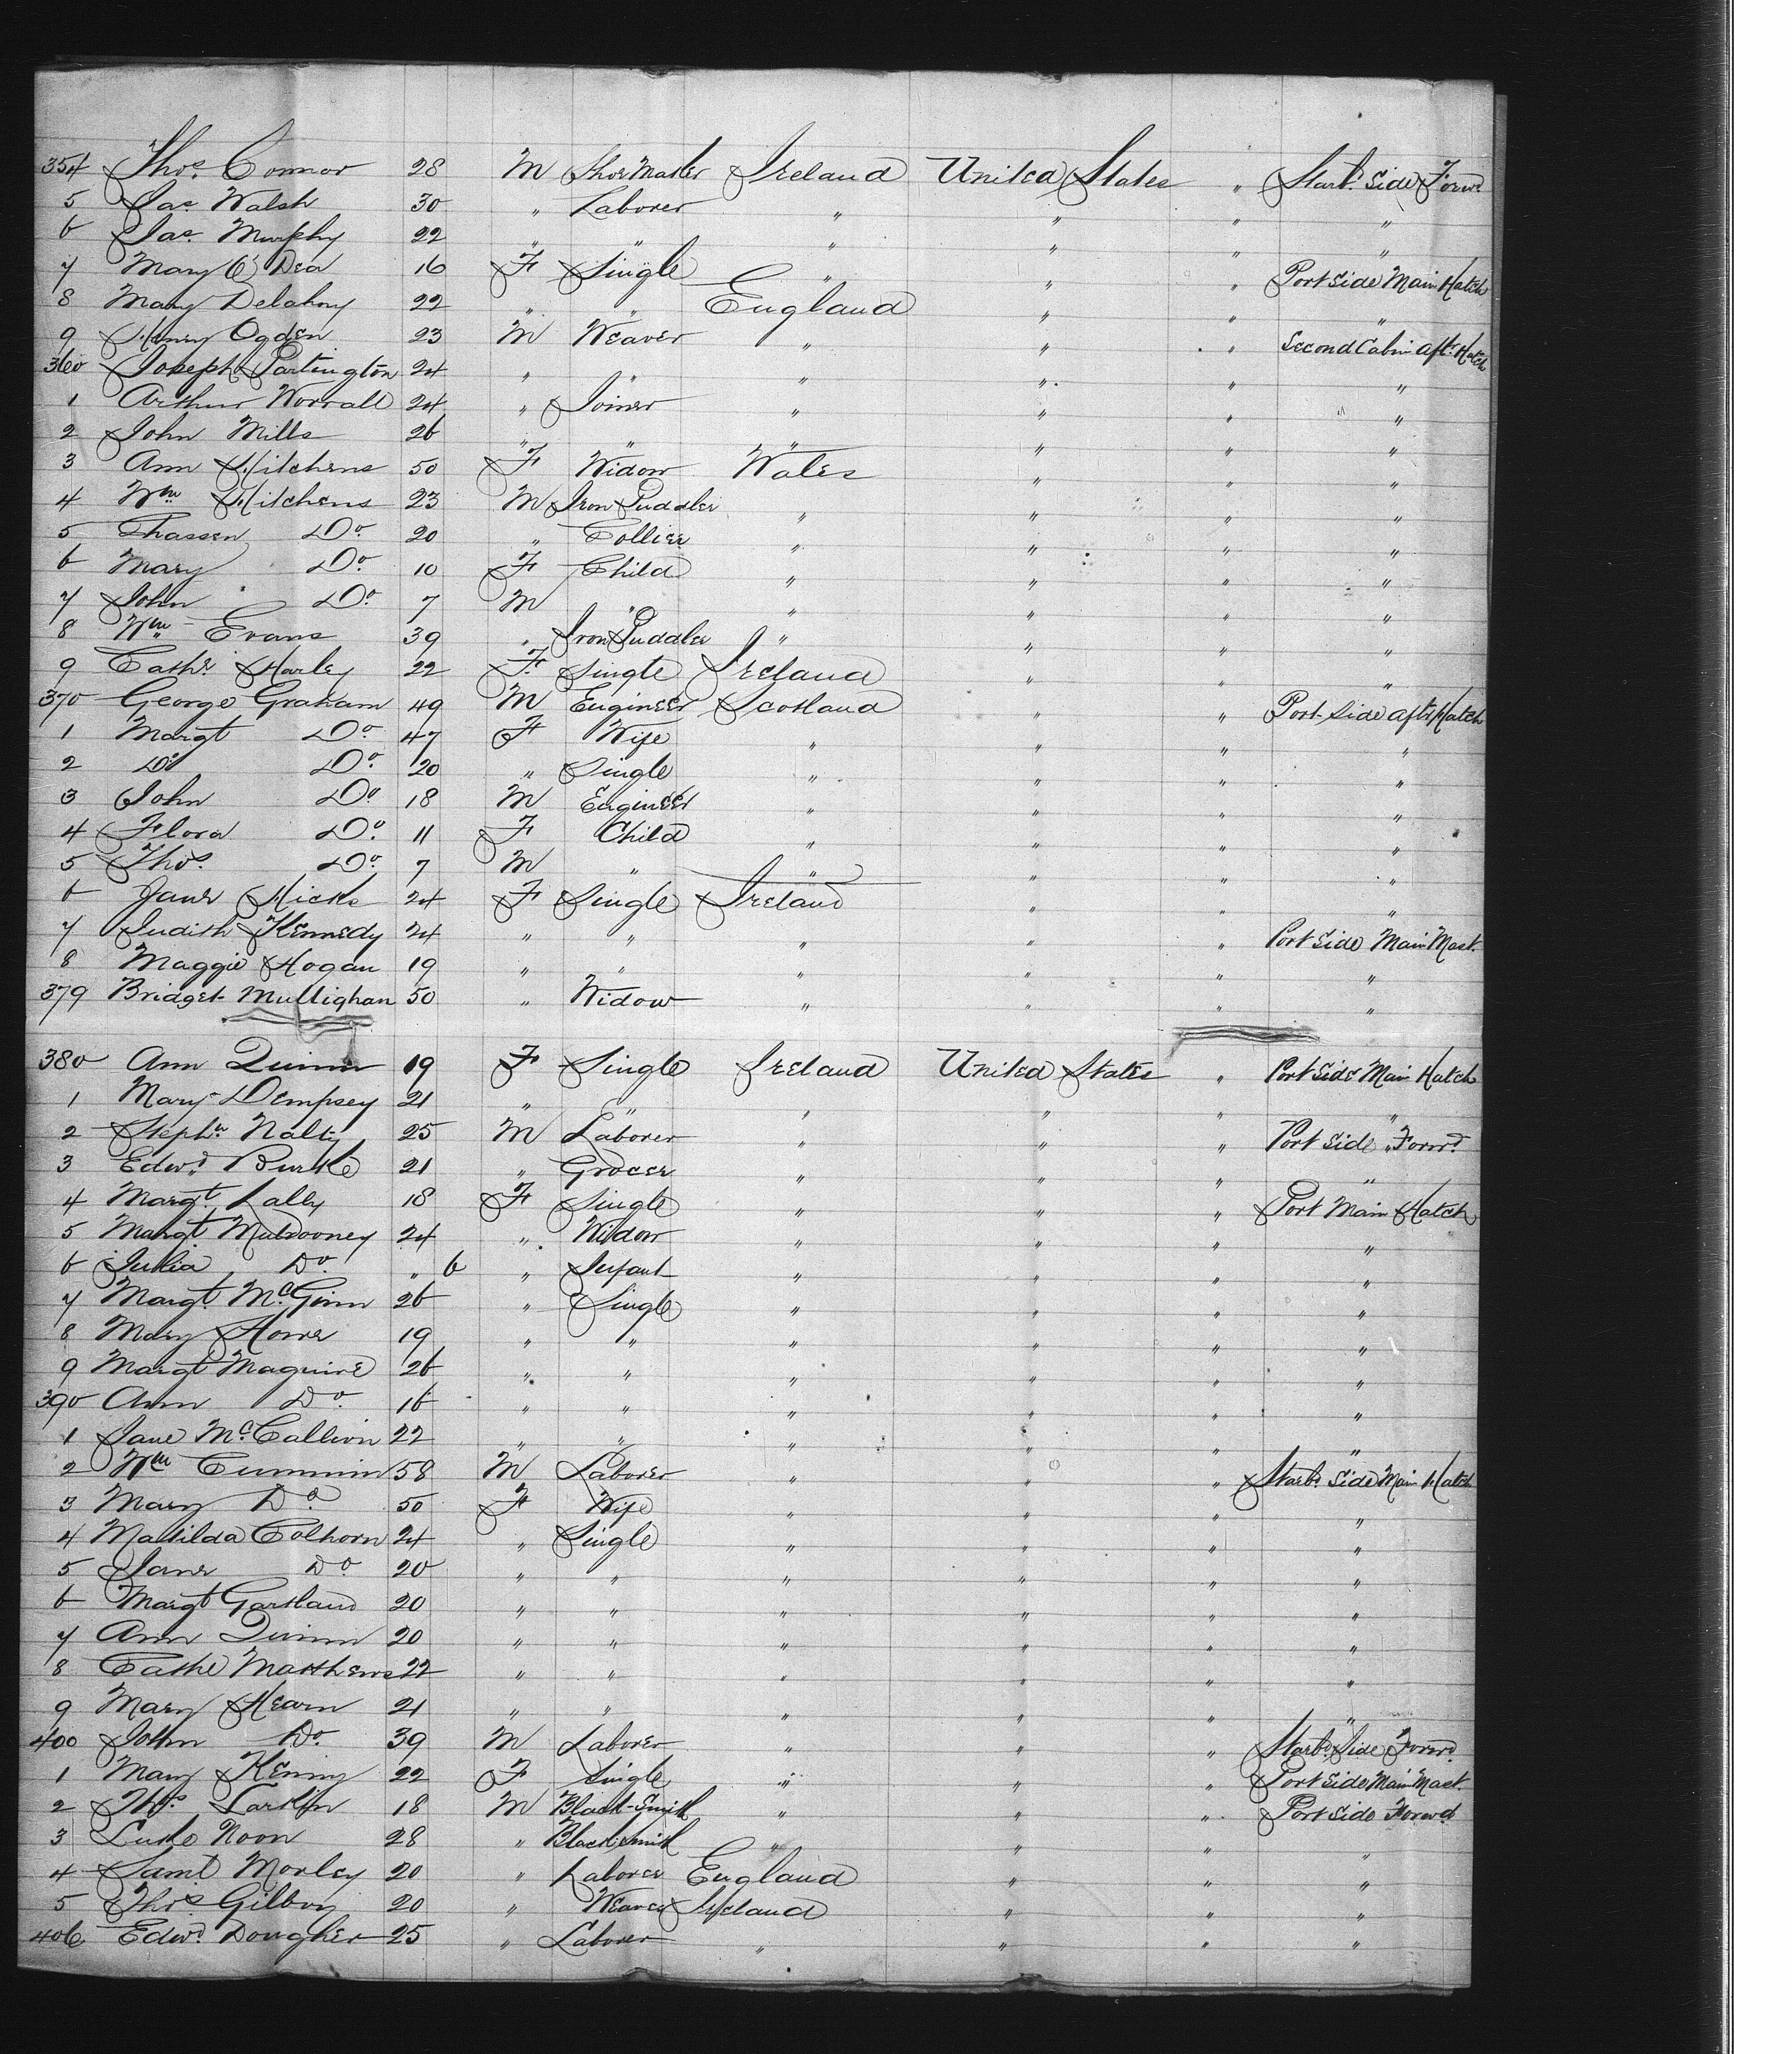 354 Thos. Connor 28 M ShoeMaker Ireland United States " Starbd. Side Forwd
5 Jas. Walsh 30 " Laborer " " " "
6 Jas. Murphy 22 " " " " " "
7 Mary O'Dea 16 F Single " " " Port Side Main Hatch
8 Mary Delahoy 22 " " England " " "
9 Henry Ogden 23 M Weaver " " " Second Cabin aftr. Hatch
360 Joseph Partington 24 " " " " " "
1 Arthur Worrall 24 " Joiner " " " "
2 John Mills 26 " " " " " "
3 Ann Hitchens 50 F Widow Wales " " "
4 Wm Hitchens 23 M Iron Puddler " " " "
5 Thassen Do. 20 " Collier " " " "
6 Mary Do. 10 F Child " " " "
7 John Do. 7 M " " " " "
8 Wm Evans 39 " Iron Puddler " " " "
9 Cathe. Harley 22 F Single Ireland " " "
370 George Graham 49 M Engineer Scotland " " Port-Side aftr Hatch
1 Margt Do. 47 F Wife " " " "
2 Do Do. 20 " Single " " " "
3 John Do. 18 M Engineer " " " "
4 Flora Do. 11 F Child " " " "
5 Thos. Do. 7 M " " " " "
6 Jane Hicks 24 F Single Ireland " " "
7 Judith Kennedy 24 " " " " " Port Side Main Mast.
8 Maggie Hogan 19 " " " " " "
379 Bridget Mullighan 50 " Widow " " " "
380 Ann Quinn 19 F Single Ireland United States " Port Side Main Hatch
1 Mary Dempsey 21 " " " " " "
2 Stephn. Nalty 25 M Laborer " " " Port Side Forwd.
3 Edwd. Burke 21 " Grocer " " " "
4 Margt. Lally 18 F Single " " " Port Main Hatch
5 Margt. Muldooney 24 " Widow " " " "
6 Julia Do. " 6 " Infant " " " "
7 Margt. McGinn 26 " Single " " " "
8 Mary Howe 19 " " " " " "
9 Margt Maguire 26 " " " " " "
390 Ann Do. 16 " " " " " "
1 Jane McCallion 22 " " " " " "
2 Wm Cummin 58 M Laborer " " " Starbd. Side Main Hatch
3 Mary Do 50 F Wife " " " "
4 Matilda Colhorn 24 " Single " " " "
5 Jane Do 20 " " " " " "
6 Margt Gartland 20 " " " " " "
7 Ann Quinn 20 " " " " " "
8 Cathe Matthews 22 " " " " " "
9 Mary Hearn 21 " " " " " "
400 John Do. 39 M Laborer " " " Starbd. Side Forwd.
1 Mary Kenny 22 F Single " " " Port Side Main Mast.
2 Thos. Larkin 18 M Black-Smith " " " Port Side Forwd
3 Luke Noon 28 " BlackSmith " " " "
4 Saml Morley 20 " Laborer England " " "
5 Thos Gilboy 20 " Weaver Ireland " " "
406 Edwd. Dougher 25 " Laborer " " " "